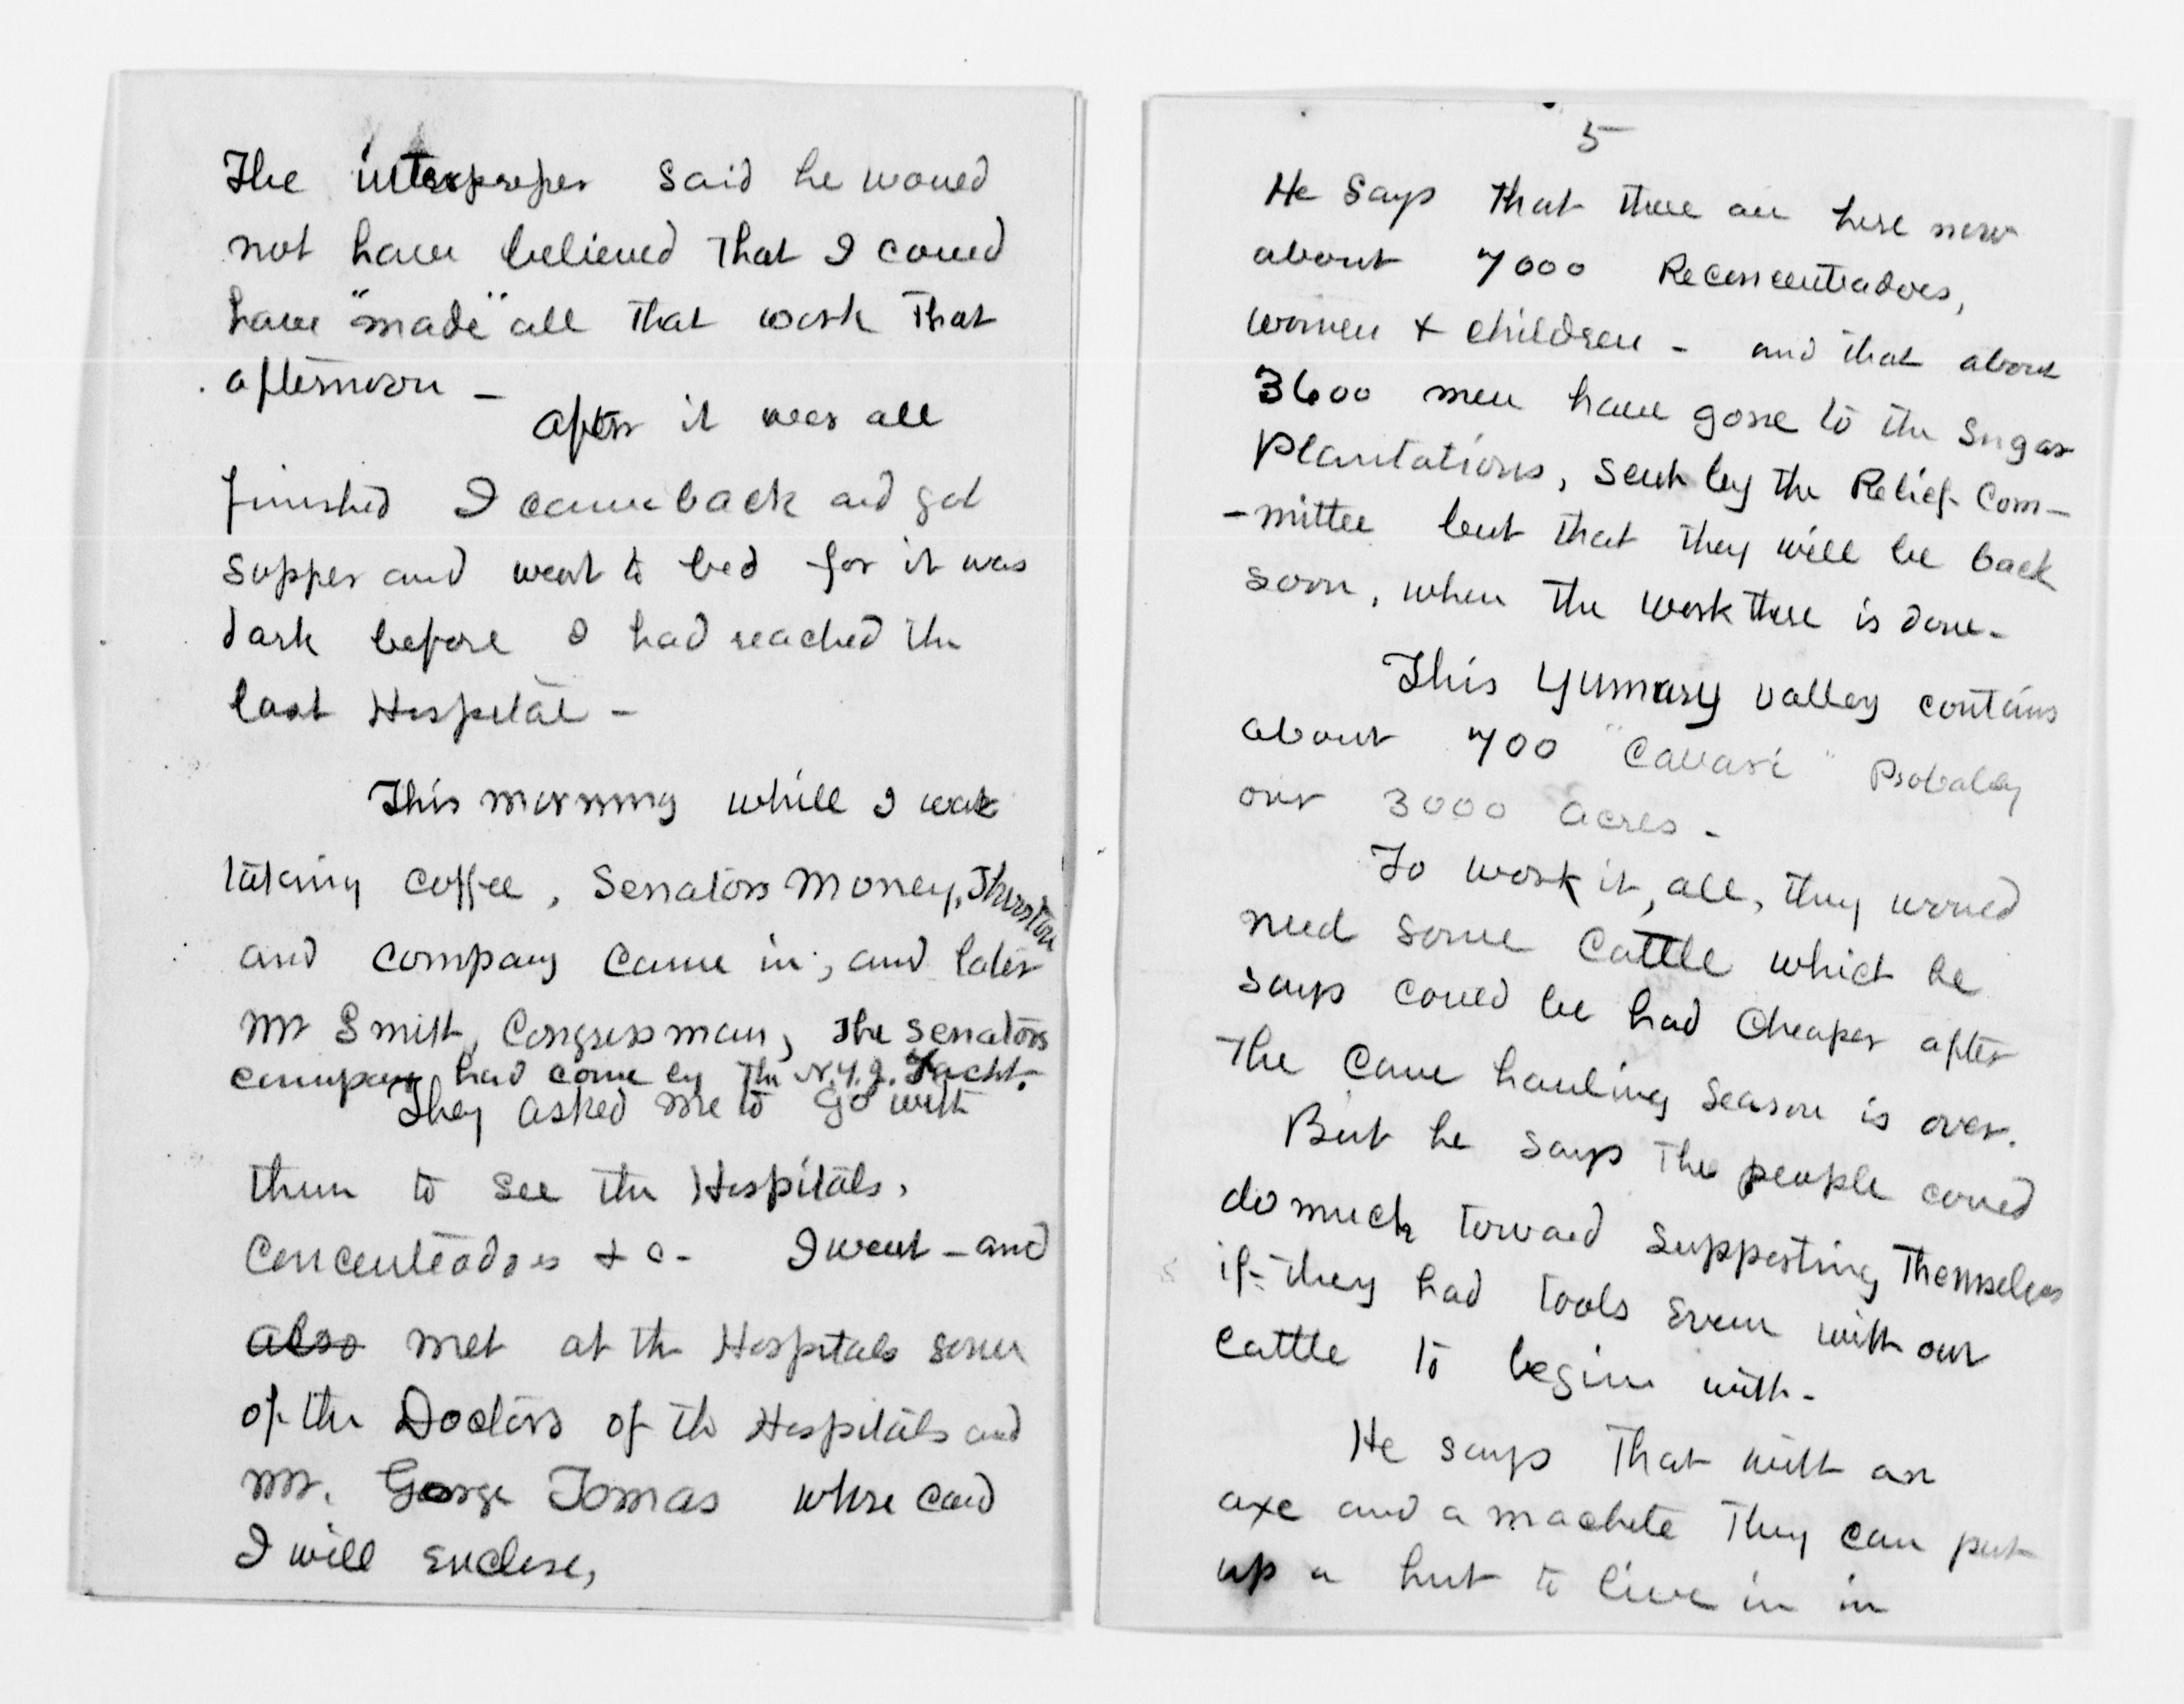 The interpreper said he would
not have believed that I could
have "made" all that work that
afternoon –
After it was all
finished I came back and got
supper and went to bed for it was
dark before I had reached the
last Hospital –
This morning while I was
taking coffee, Senators Money, Thurston
and company came in, and later
Mr Smith, Congressman, The Senators
company had come by the N.Y.J. Yacht.
They asked me to go with
them to see the Hospitals,
Concentrados & c – I went – and
also met at the Hospitals some
of the Doctors of the Hospitals and
Mr. George Tomas whose card
I will enclose,
5
He says that there are here now
about 7000 Reconcentradoes,
women & children – and that about
3600 men have gone to the sugar
plantations, sent by the Relief Com–
–mittee but that they will be back
soon, when the work there is done –
This Yumury valley contains
about 700 " " Probably
over 3000 acres –
To work it, all, they would
need some cattle which he
says could be had cheaper after
the cane hauling season is over.
But he says the people could
do much toward supporting themselves
if they had tools even without
cattle to begin with –
He says that with an
axe and a machete they can put
up a hut to live in in